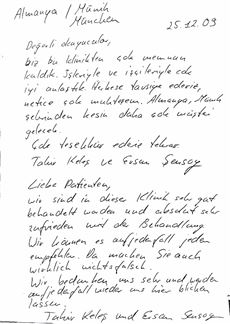 Almanya / Münih
München
25.12.09
Değerli okuyucular,
biz bu klinikten çok memnun
kaldık. İşleriyle ve ilgileriyle çok
iyi anlaştık. Herkese tavsiye ederiz,
netice çok muhteşem. Almanya, Münih
şehrinden kesin daha çok müşteri
gelecek.
Çok teşekkür ederiz tekrar
Tahir Keleş ve Ercan Şensoy
Liebe Patienten,
wir sind in dieser Klinik sehr gut
behandelt worden und absolut sehr
zufrieden mit der Behandlung.
Wir können es aufjedenfall jeden
empfehlen. Da machen Sie auch
wirklich nichts falsch.
Wir bedanken uns sehr und werden
aufjedenfall wieder uns hier blicken
lassen.
Tahir Keleş und Ercan Şensoy